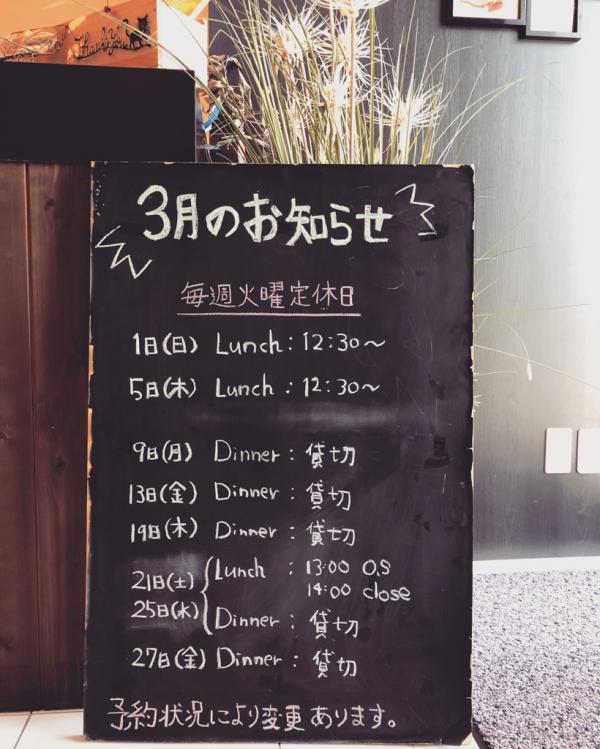 Thank You
3月のお知らせ
毎週火曜定休日
1日(日) Lunch : 12:30〜
5日(木) Lunch : 12:30〜
9日(月) Dinner : 貸切
13日(金) Dinner : 貸切
19日(木) Dinner : 貸切
21日(土) Lunch : 13:00 O.S
14:00 close
25日(水) Dinner : 貸切
27日(金) Dinner : 貸切
予約状況により変更あります。